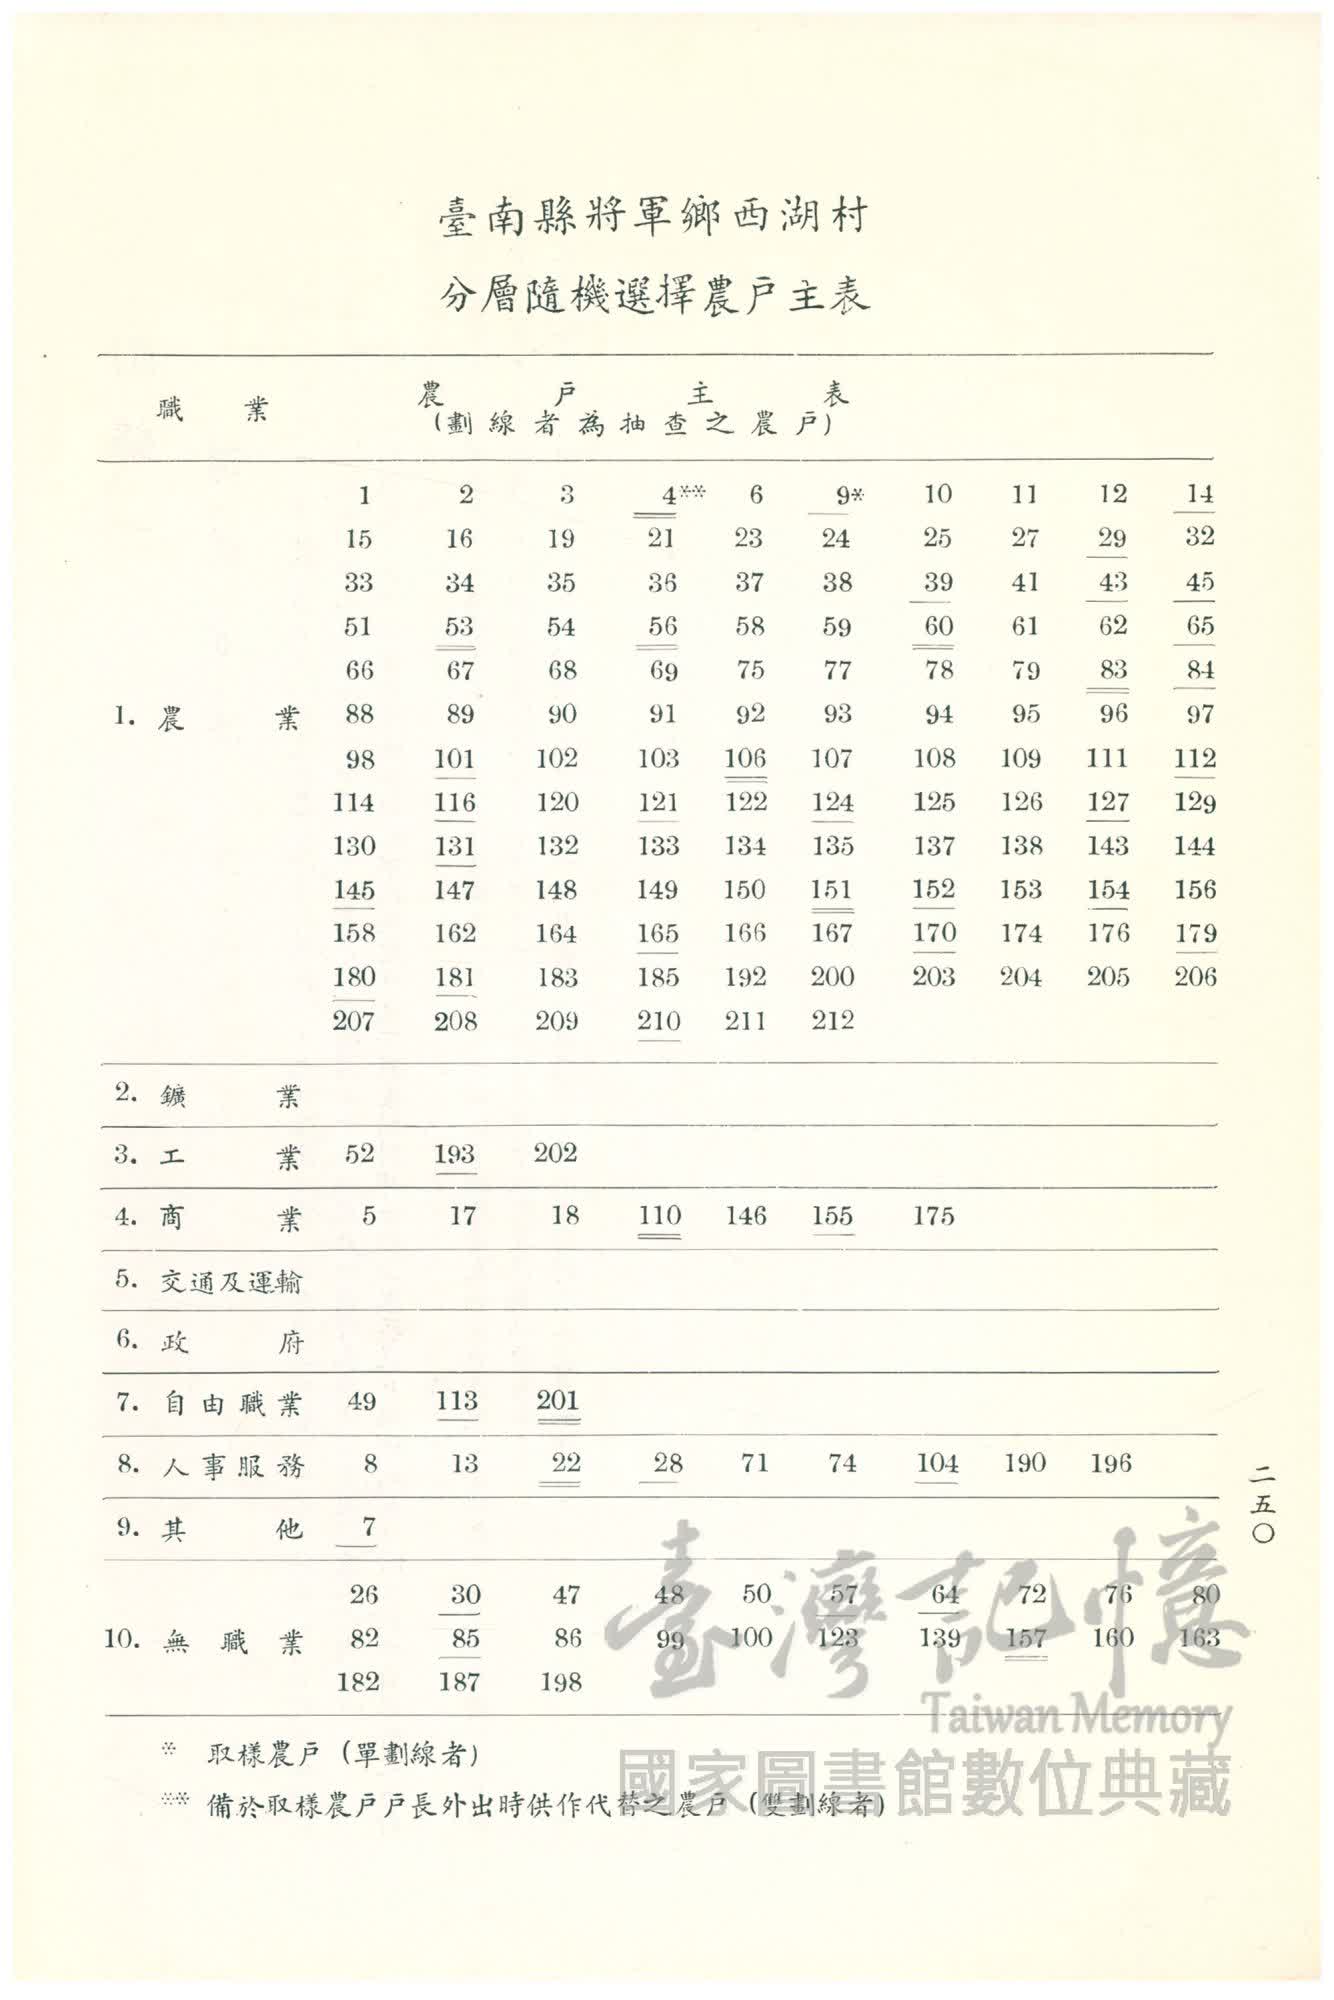 臺南縣將軍鄉西湖村
分層隨機選擇農戶主表
職業 農戶主表
(劃線者為抽查之農戶)
1 2 3 4** 6 9* 10 11 12 14
15 16 19 21 23 24 25 27 29 32
33 34 35 36 37 38 39 41 43 45
51 53 54 56 58 59 60 61 62 65
66 67 68 69 75 77 78 79 83 84
1. 農業 88 89 90 91 92 93 94 95 96 97
98 101 102 103 106 107 108 109 111 112
114 116 120 121 122 124 125 126 127 129
130 131 132 133 134 135 137 138 143 144
145 147 148 149 150 151 152 153 154 156
158 162 164 165 166 167 170 174 176 179
180 181 183 185 192 200 203 204 205 206
207 208 209 210 211 212
2. 鑛業
3. 工業 52 193 202
4. 商業 5 17 18 110 146 155 175
5. 交通及運輸
6. 政府
7. 自由職業 49 113 201
8. 人事服務 8 13 22 28 71 74 104 190 196
9. 其他 7
26 30 47 48 50 57 64 72 76 80
10. 無職業 82 85 86 99 100 123 139 157 160 163
182 187 198
* 取樣農戶(單劃線者)
** 備於取樣農戶戶長外出時供作代替之農戶(雙劃線者)
二五〇
臺灣記憶
Taiwan Memory
國家圖書館數位典藏